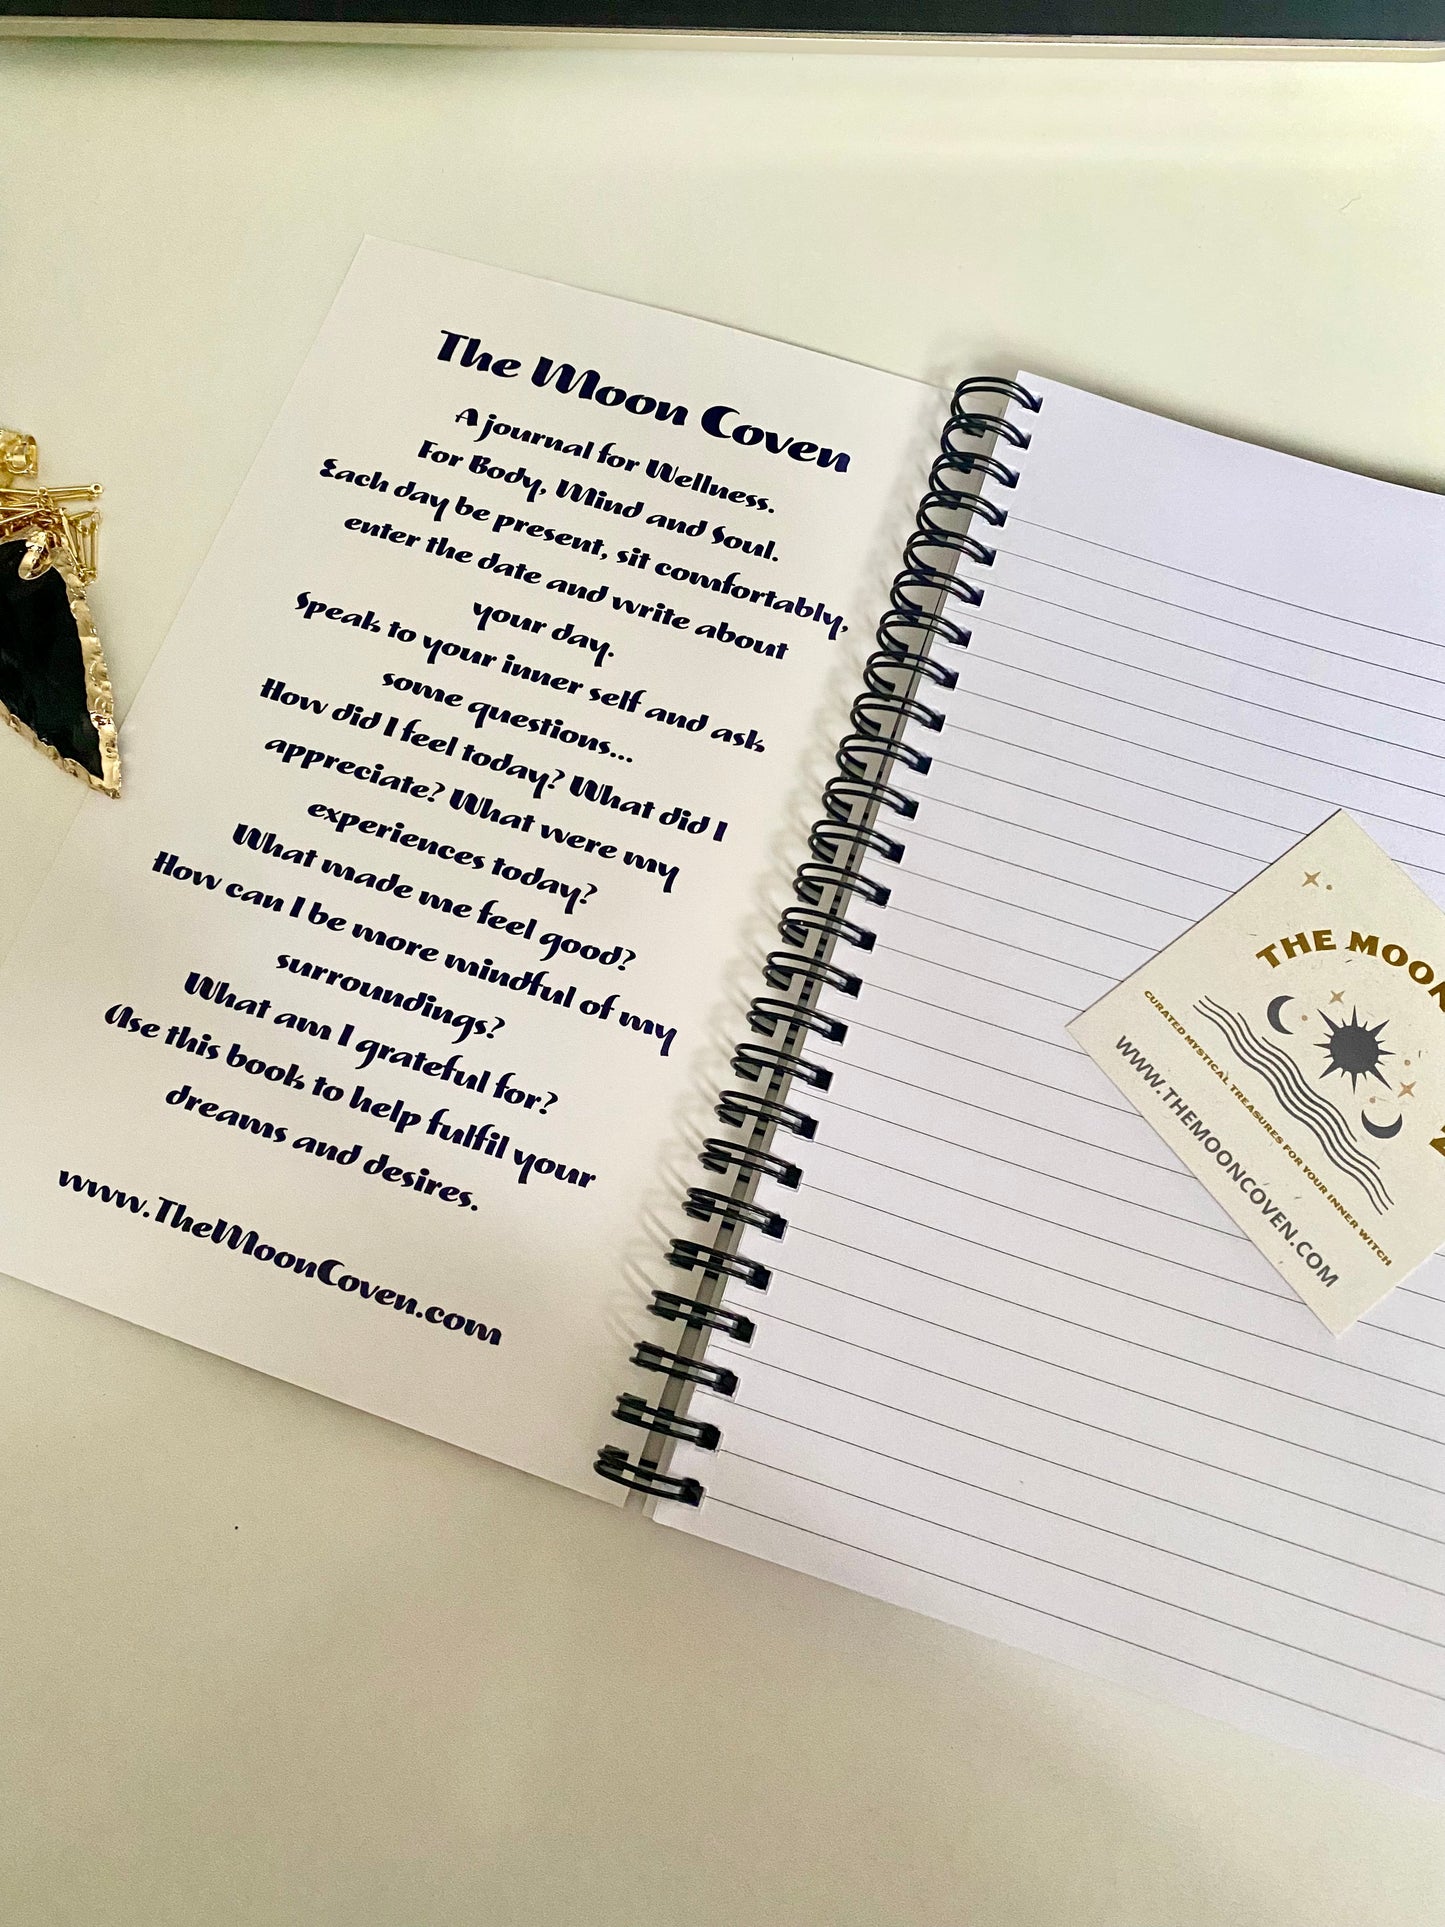 The Moon Coven
A journal for Wellness.
For Body, Mind and Soul.
Each day be present, sit comfortably,
enter the date and write about
your day.
Speak to your inner self and ask
some questions...
How did I feel today? What did I
appreciate? What were my
experiences today?
What made me feel good?
How can I be more mindful of my
surroundings?
What am I grateful for?
Use this book to help fulfil your
dreams and desires.
www.TheMoonCoven.com
THE MOON
CURATED MYSTICAL TREASURES FOR YOUR INNER WITCH
WWW.THEMOONCOVEN.COM